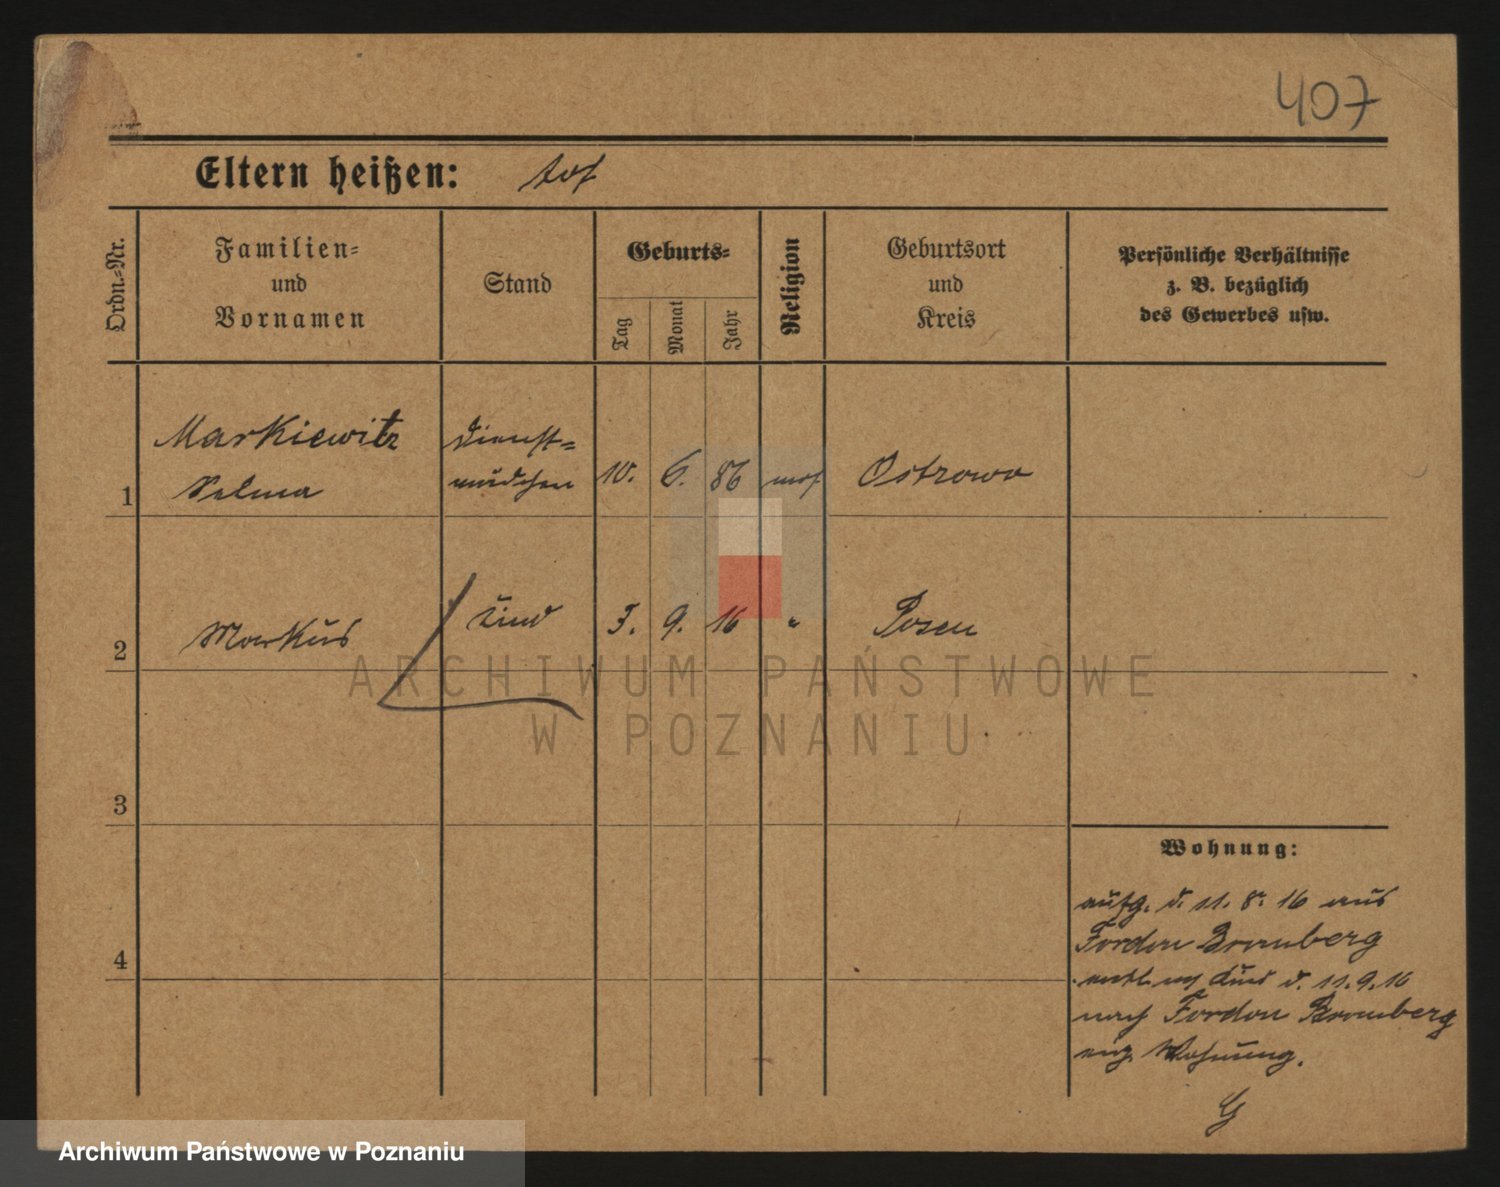 407
Eltern heißen: tot
Ordn.-Nr.
Familien-
und
Vornamen
Stand
Geburts-
Tag
Monat
Jahr
Religion
Geburtsort
und
Kreis
Persönliche Verhältnisse
z. B. bezüglich
des Gewerbes usw.
Markiewitz
Selma
Dienst-
mädchen
1
10. 6. 86 mos Ostrowo
2
Markus
Kind
3. 9. 16 " Posen
ARCHIWUM PAŃSTWOWE
W POZNANIU
3
4
Wohnung:
aufg. d. 11. 8. 16 aus
Fordon Bromberg
Kind d. 11.9.16
nach Fordon Bromberg
eig. Wohnung.
G
Archiwum Państwowe w Poznaniu